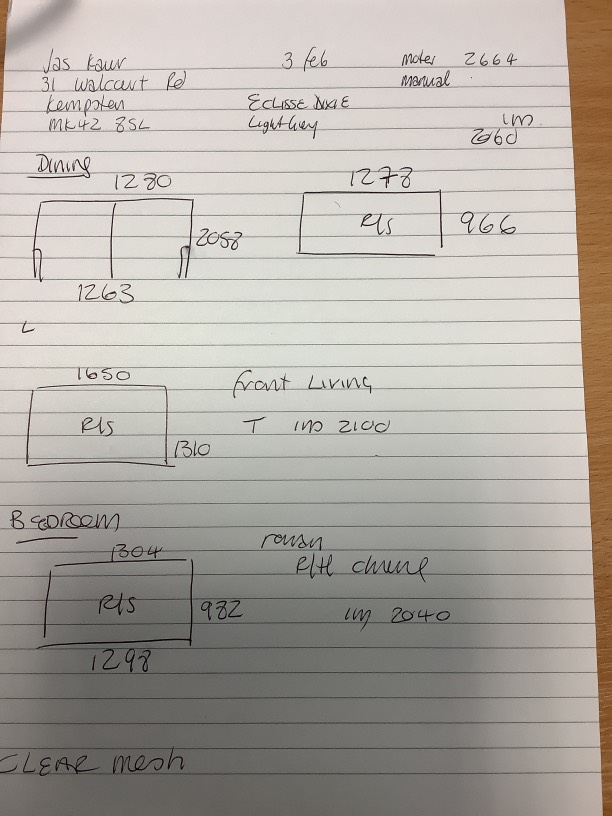 Jas Kaur 3 feb moter 2664
31 Walcourt Rd manual
Kempston ECLISSE DIXIE
MK42 8SL Light Grey im
2060
DINING
1280 1278
2058 R/S 966
1263
L
1650 front Living
R/S T im 2100
1310
BEDROOM
1304
R/H
R/S 982 im 2040
1298
CLEAR mesh